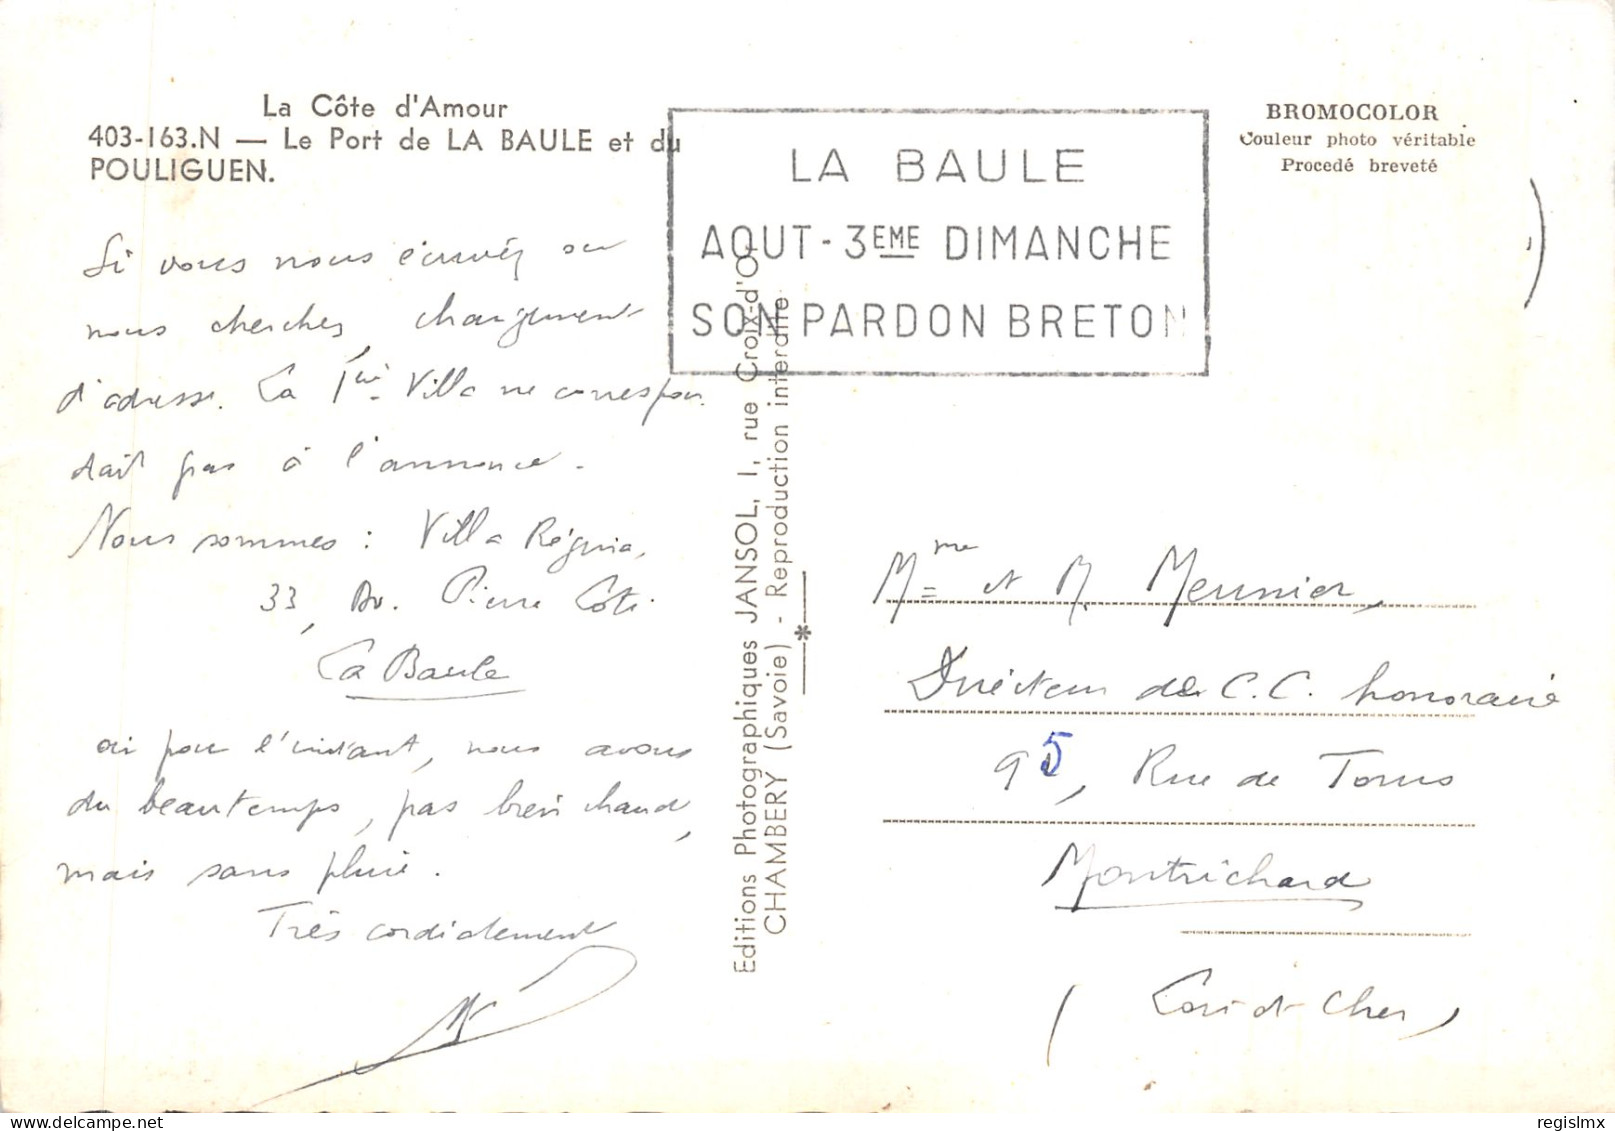 La Côte d'Amour
403-163.N — Le Port de LA BAULE et du
POULIGUEN.
Si vous nous écrivez ou
nous cherchez, changement
d'adresse. La 1ère Villa ne correspon-
dait pas à l'annonce.
Nous sommes : Villa Régina,
33, Av. Pierre Loti.
La Baule
où pour l'instant, nous avons
du beau temps, pas bien chaud,
mais sans pluie.
Très cordialement
Editions Photographiques JANSOL, 1, rue Croix-d'Or
CHAMBERY (Savoie) - Reproduction interdite
LA BAULE
AOUT - 3EME DIMANCHE
SON PARDON BRETON
BROMOCOLOR
Couleur photo véritable
Procedé breveté
Mme et M. Meunier,
Directeur de C.C. honoraire
95, Rue de Tours
Montrichard
(Loir-et-Cher)
regislmx